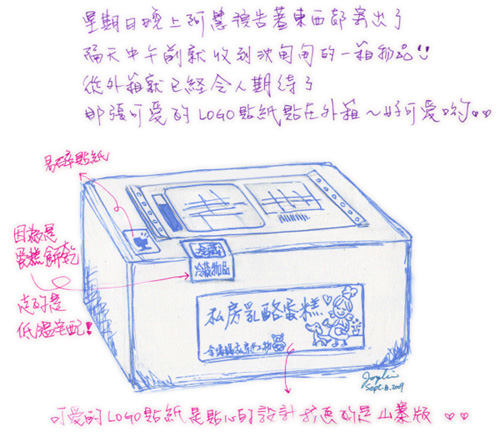 星期日晚上阿慧預告著東西都寄出了
隔天中午前就收到沈甸甸的一箱物品!!
從外箱就已經令人期待了
那張可愛的LOGO貼紙黏在外箱~好可愛喲
易碎貼紙
因為是
蛋糕餅乾
走的是
低溫宅配!
冷藏
冷藏物品
私房乳酪蛋糕
Sept. 8. 2009
可愛的LOGO貼紙是貼心的設計
的是山寨版